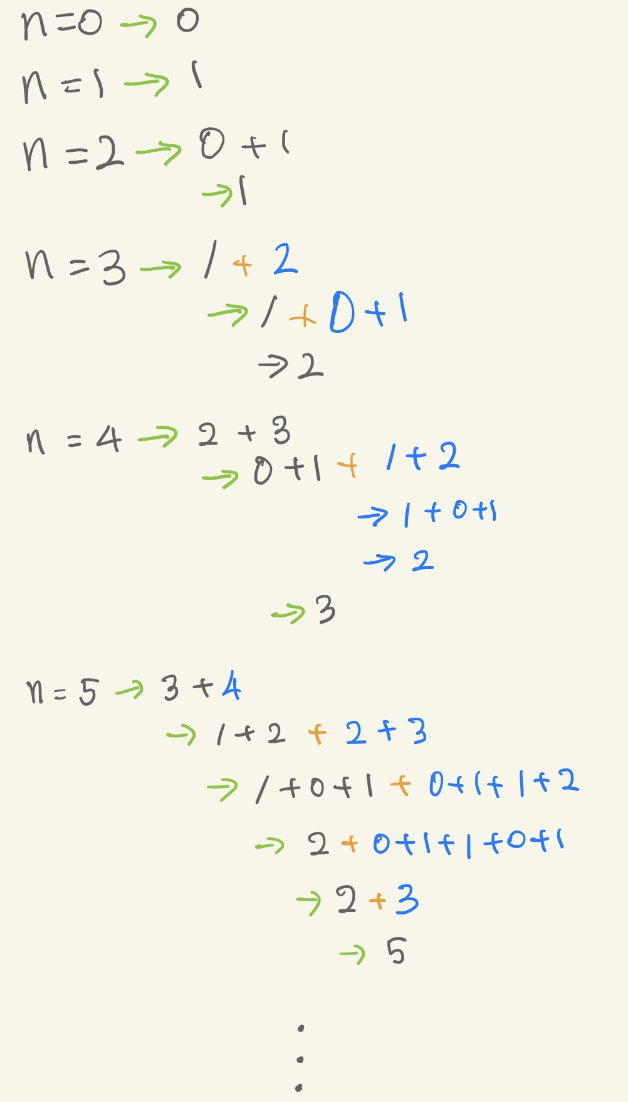 n=0 → 0
n=1 → 1
n=2 → 0+1
→ 1
n=3 → 1+2
→ 1+0+1
→ 2
n=4 → 2+3
→ 0+1+1+2
→ 1+0+1
→ 2
→ 3
n=5 → 3+4
→ 1+2+2+3
→ 1+0+1+0+1+1+2
→ 2+0+1+1+0+1
→ 2+3
→ 5